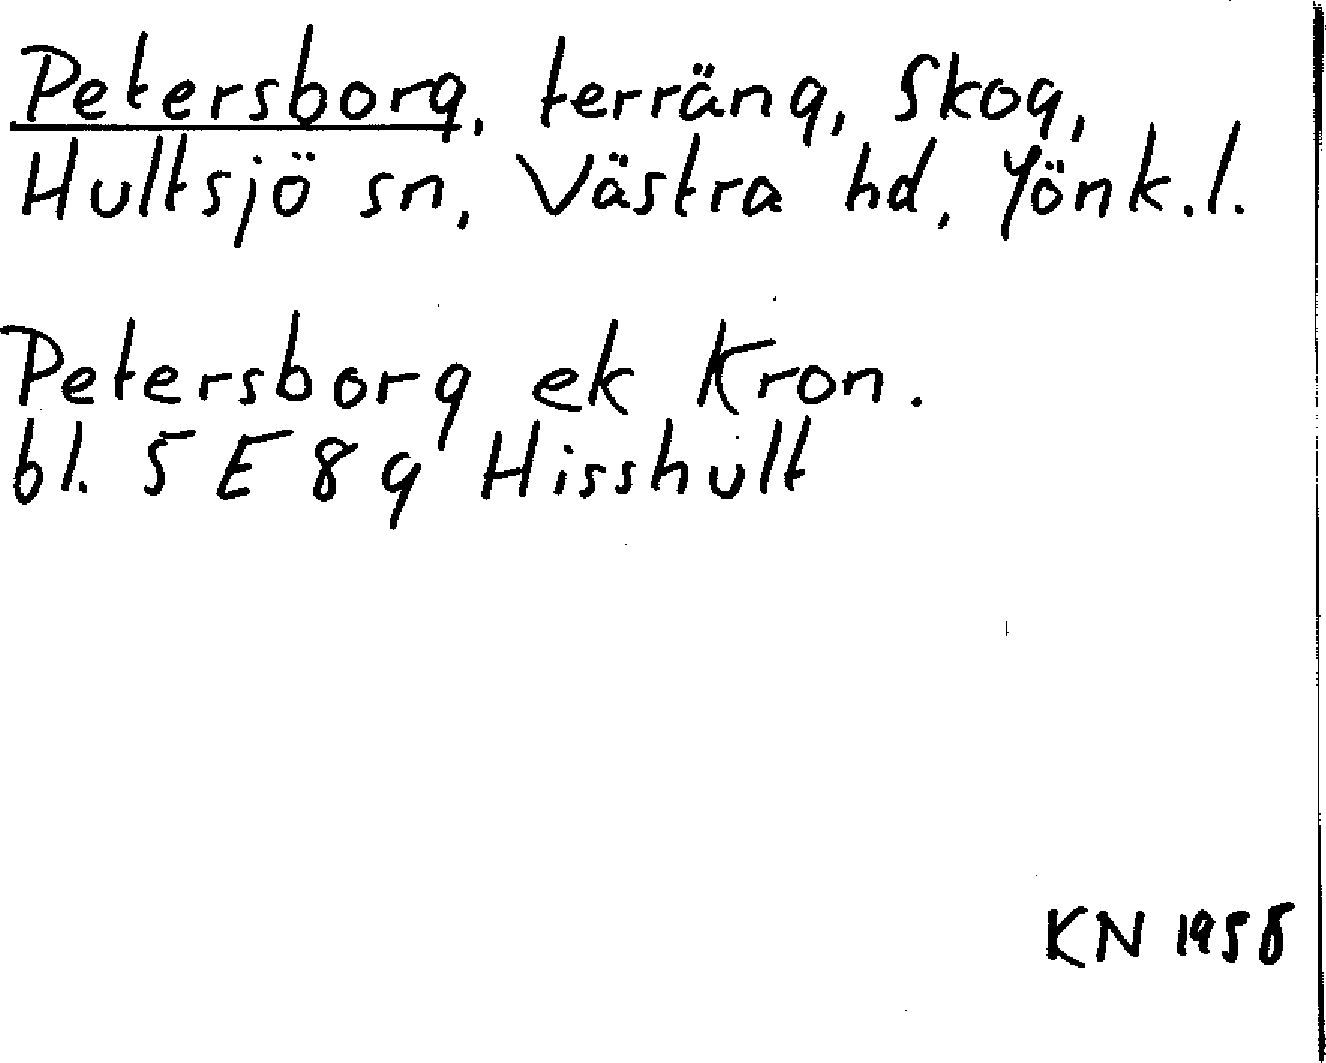 Petersborg, terräng, Skog,
Hultsjö sn, Västra hd, Jönk.l.
Petersborg ek Kron.
bl. 5 E 8 g Hisshult
KN 1958